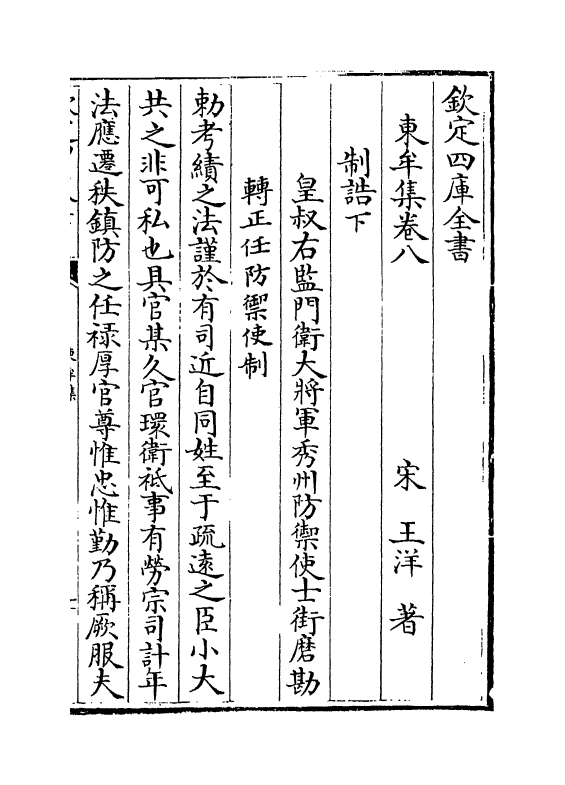 欽定四庫全書
東牟集卷八
宋 王洋 著
制誥下
皇叔右監門衛大將軍秀州防禦使士街磨勘
轉正任防禦使制
勅考績之法謹於有司近自同姓至于疏遠之臣小大
共之非可私也具官某久官環衛祗事有勞宗司計年
法應遷秩鎮防之任祿厚官尊惟忠惟勤乃稱厥服夫